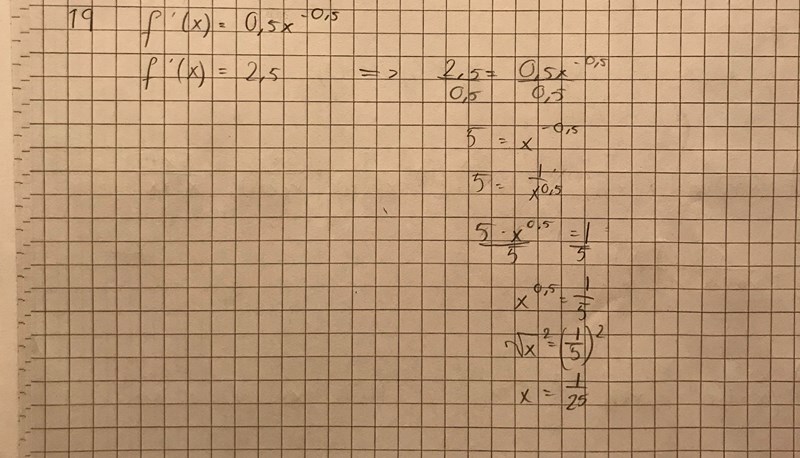 19 f'(x) = 0,5x^-0,5
f'(x) = 2,5 => 2,5/0,5 = 0,5x^-0,5/0,5
5 = x^-0,5
5 = 1/x^0,5
5·x^0,5/5 = 1/5
x^0,5 = 1/5
√x^2 = (1/5)^2
x = 1/25